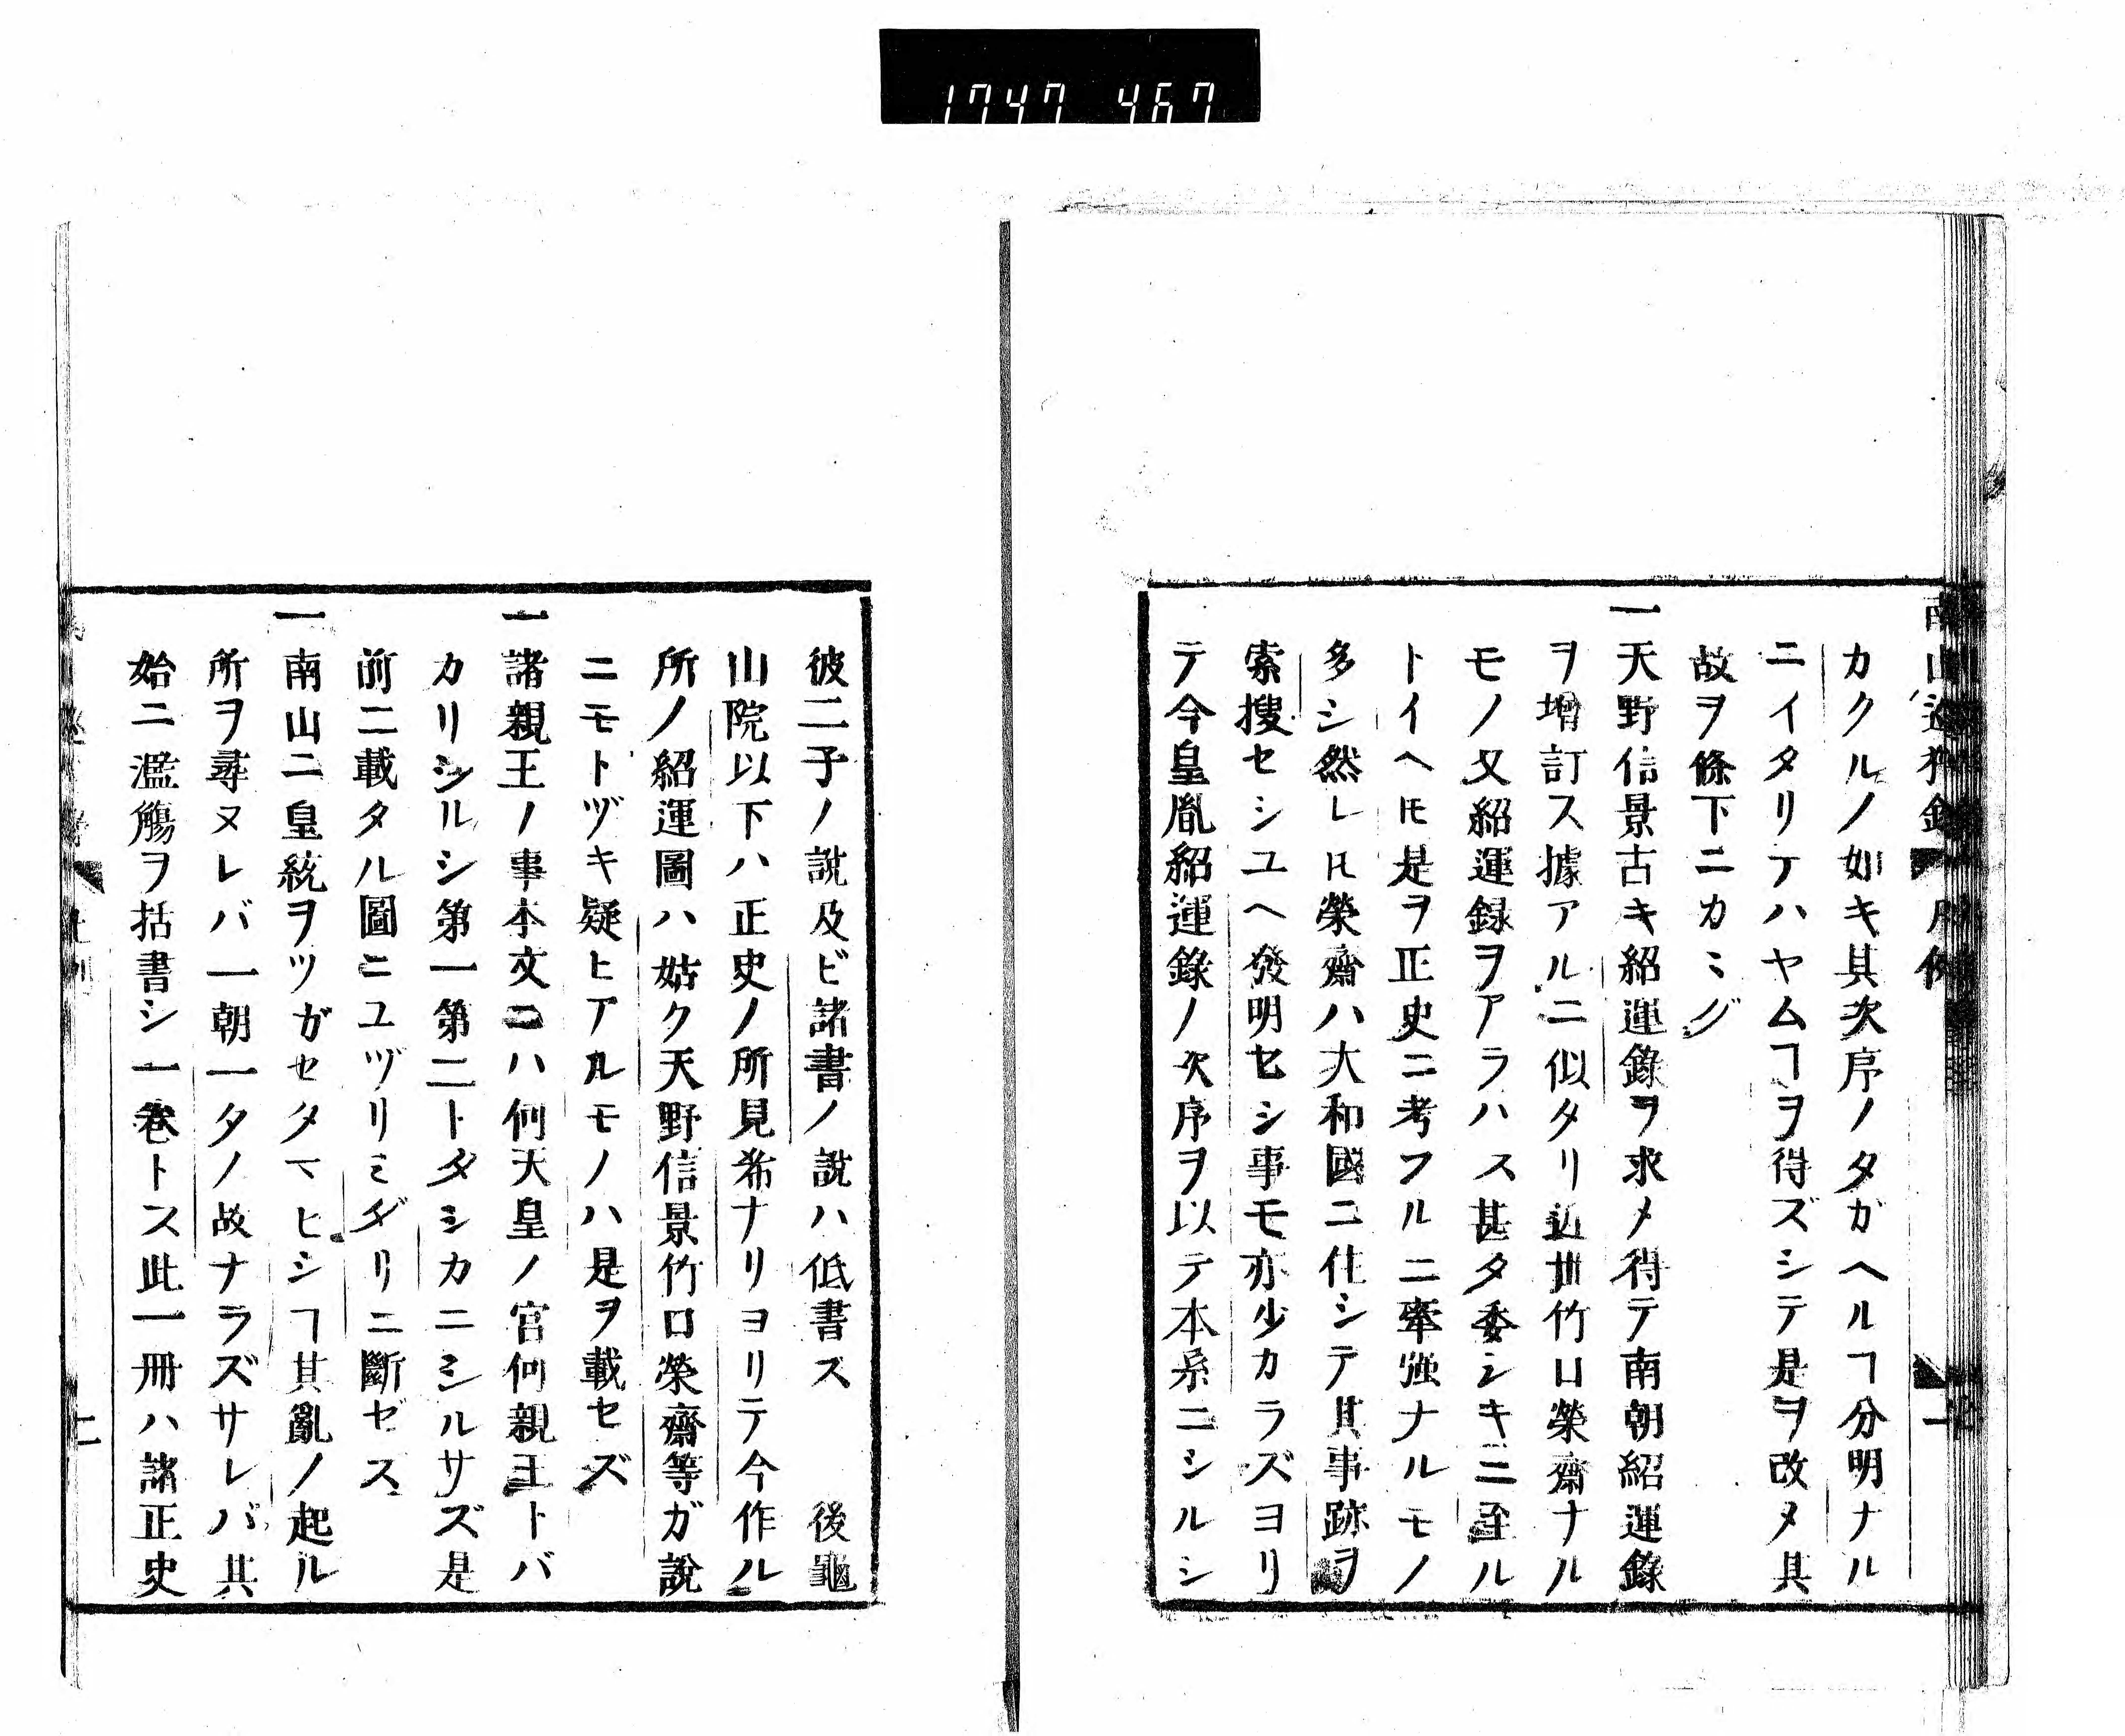 1747 467
カクルノ如キ其次序ノタガヘルヿ分明ナル
ニイタリテハヤムヿヲ得ズシテ是ヲ改メ其
故ヲ條下ニカミグ
一天野信景古キ紹運錄ヲ求メ得テ南朝紹運錄
ヲ增訂ス據アルニ似タリ近世竹口榮齋ナル
モノ又紹運録ヲアラハス甚タ委シキニ至ル
トイヘ𪜈是ヲ正史ニ考フルニ牽强ナルモノ
多シ然レ𪜈榮齋ハ大和國ニ住シテ其事跡ヲ
索搜セシユヘ發明セシ事モ亦少カラズヨリ
テ今皇胤紹運錄ノ次序ヲ以テ本系ニシルシ
彼二子ノ說及ビ諸書ノ說ハ低書ス 後龜
山院以下ハ正史ノ所見希ナリヨリテ今作ル
所ノ紹運圖ハ姑ク天野信景竹口榮齋等ガ說
ニモトヅキ疑ヒアルモノハ是ヲ載セズ
一諸親王ノ事本文ニハ何天皇ノ宮何親王トバ
カリシルシ第一第二トタシカニシルサズ是
前ニ載タル圖ニユヅリミダリニ斷ゼス
一南山ニ皇統ヲツガセタマヒシヿ其亂ノ起ル
所ヲ尋ヌレバ一朝一タノ故ナラズサレバ其
始ニ濫觴ヲ括書シ一卷トス此一冊ハ諸正史
二